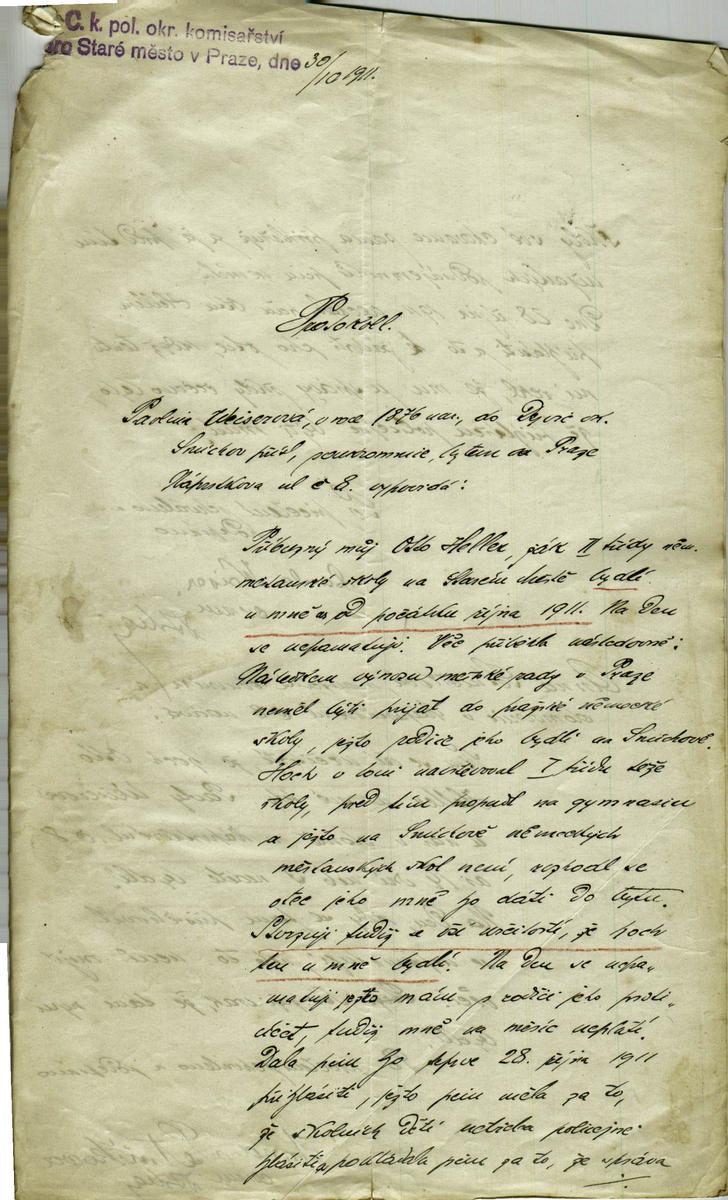 C. k. pol. okr. komisařství
pro Staré město v Praze, dne 30/10 1911.
Protokoll.
Pavlina Weiserová, v roce 1876 nar., do Dejvic okr.
Smíchov přísl., soukromnice, bytem v Praze
Náprstkova ul č 8. vypovídá:
Příbuzný můj Otto Heller, žák II třídy něm.
mešťanské školy na Starém Městě bydlí
u mně od počátku října 1911. Na den
se nepamatuji. Věc přiběhla následovně:
Následkem výnosu městské rady v Praze
neměl býti přijat do pražské německé
školy, ježto rodiče jeho bydlí na Smíchově.
Hoch v loni navštěvoval I třídu téže
školy, před tím propadl na gymnasiu
a ježto na Smíchově německých
měšťanských škol není, rozhodl se
otec jeho mně ho dáti do bytu.
Stvrzuji tudíž s vší určitostí, že hoch
ten u mně bydlí. Na den se nepa-
matuji ježto mám s rodiči jeho proti-
účet, tudíž mně na měsíc neplatí.
Dala jsem ho teprve 28. října 1911
přihlásiti, ježto jsem měla za to,
že školních dětí netřeba policejně
hlásiti a pokládala jsem za to, že správa
./.